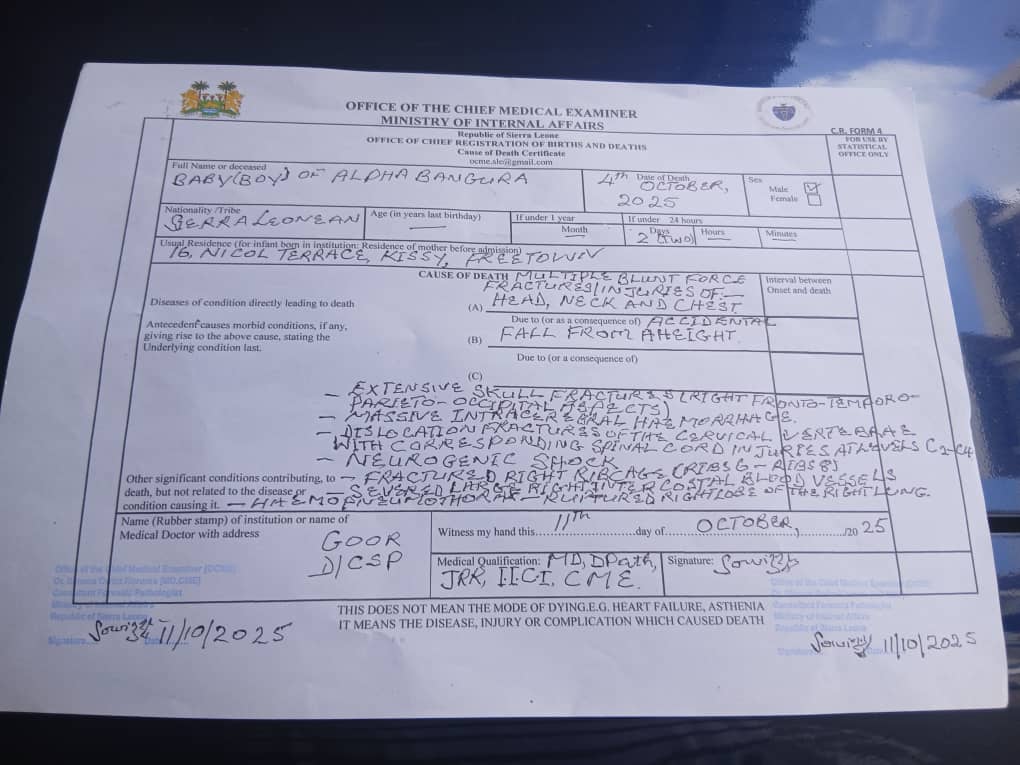 OFFICE OF THE CHIEF MEDICAL EXAMINER
MINISTRY OF INTERNAL AFFAIRS
Republic of Sierra Leone
OFFICE OF CHIEF REGISTRATION OF BIRTHS AND DEATHS
Cause of Death Certificate
ocme.sle@gmail.com
C.R. FORM 4
FOR USE BY
STATISTICAL
OFFICE ONLY
Full Name or deceased
BABY (BOY) OF ALPHA BANGURA
Date of Death
4th OCTOBER,
2025
Sex
Male
Female
Nationality /Tribe
SIERRA LEONEAN
Age (in years last birthday)
—
If under 1 year
Month
—
If under 24 hours
Days Hours Minutes
2 (TWO) — —
Usual Residence (for infant born in institution: Residence of mother before admission)
16, NICOL TERRACE, KISSY, FREETOWN
CAUSE OF DEATH MULTIPLE BLUNT FORCE
FRACTURES/INJURIES OF:—
Diseases of condition directly leading to death
(A) HEAD, NECK AND CHEST.
Interval between
Onset and death
Due to (or as a consequence of) ACCIDENTAL
Antecedent causes morbid conditions, if any,
giving rise to the above cause, stating the
Underlying condition last.
(B) FALL FROM A HEIGHT.
Due to (or a consequence of)
(C)
— EXTENSIVE SKULL FRACTURES (RIGHT FRONTO-TEMPORO-
PARIETO-OCCIPITAL ASPECTS)
— MASSIVE INTRACEREBRAL HAEMORRHAGE.
— DISLOCATION FRACTURES OF THE CERVICAL VERTEBRAE
WITH CORRESPONDING SPINAL CORD INJURIES AT LEVELS C2-C4
— NEUROGENIC SHOCK
Other significant conditions contributing, to
death, but not related to the disease or
condition causing it.
— FRACTURED RIGHT RIBCAGE (RIBS 6 - RIBS 8)
— SEVERED LARGE RIGHT INTERCOSTAL BLOOD VESSELS
— HAEMOPNEUMOTHORAX — RUPTURED RIGHT LOBE OF THE RIGHT LUNG.
Name (Rubber stamp) of institution or name of
Medical Doctor with address
GOOR
D/CSP
Witness my hand this 11th day of OCTOBER, /20 25
Medical Qualification: MD, DPath,
JRR, IICI, CME.
Signature:
Office of the Chief Medical Examiner [OCME]
Consultant Forensic Pathologist
Ministry of Internal Affairs
Republic of Sierra Leone
Signature Date
11/10/2025
THIS DOES NOT MEAN THE MODE OF DYING.E.G. HEART FAILURE, ASTHENIA
IT MEANS THE DISEASE, INJURY OR COMPLICATION WHICH CAUSED DEATH
Office of the Chief Medical Examiner
Consultant Forensic Pathologist
Ministry of Internal Affairs
Republic of Sierra Leone
Signature Date
11/10/2025